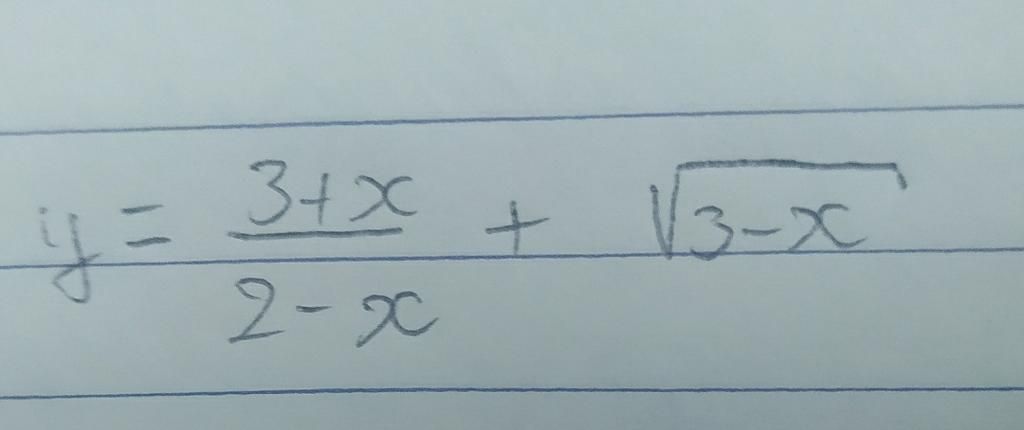 y = \frac{3+x}{2-x} + \sqrt{3-x}